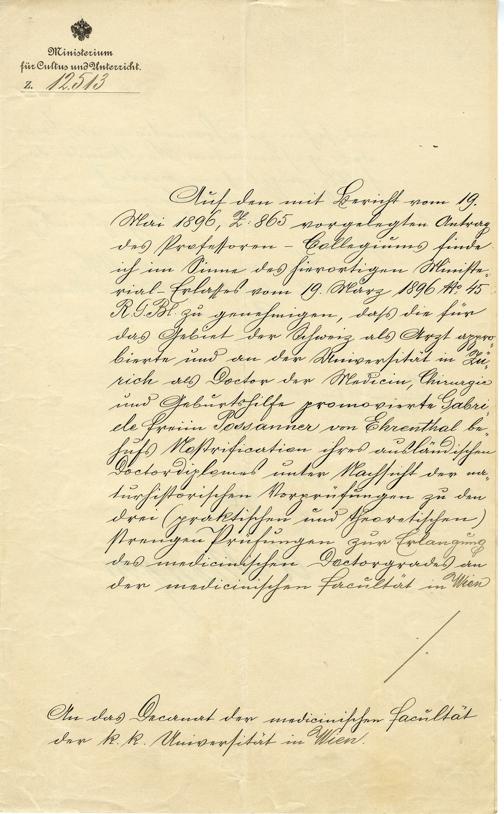 Ministerium
für Cultus und Unterricht.
Z. 12513
Auf den mit Bericht vom 19.
Mai 1896, Z. 865 vorgelegten Antrag
des Professoren-Collegiums finde
ich im Sinne des hierortigen Ministe-
rial-Erlasses vom 19. März 1896 No 45
R.G.Bl. zu genehmigen, dass die für
das Gebiet der Schweiz als Arzt appro-
bierte und an der Universität in Zü-
rich als Doctor der Medicin, Chirurgie
und Geburtshilfe promovierte Gabri-
ele Freiin Possanner von Ehrenthal be-
hufs Nostrification ihres ausländischen
Doctordiplomes unter Nachsicht der na-
turhistorischen Vorprüfungen zu den
drei (praktischen und theoretischen)
strengen Prüfungen zur Erlangung
des medicinischen Doctorgrades an
der medicinischen Facultät in Wien
./.
An das Decanat der medicinischen Facultät
der k. k. Universität in Wien.